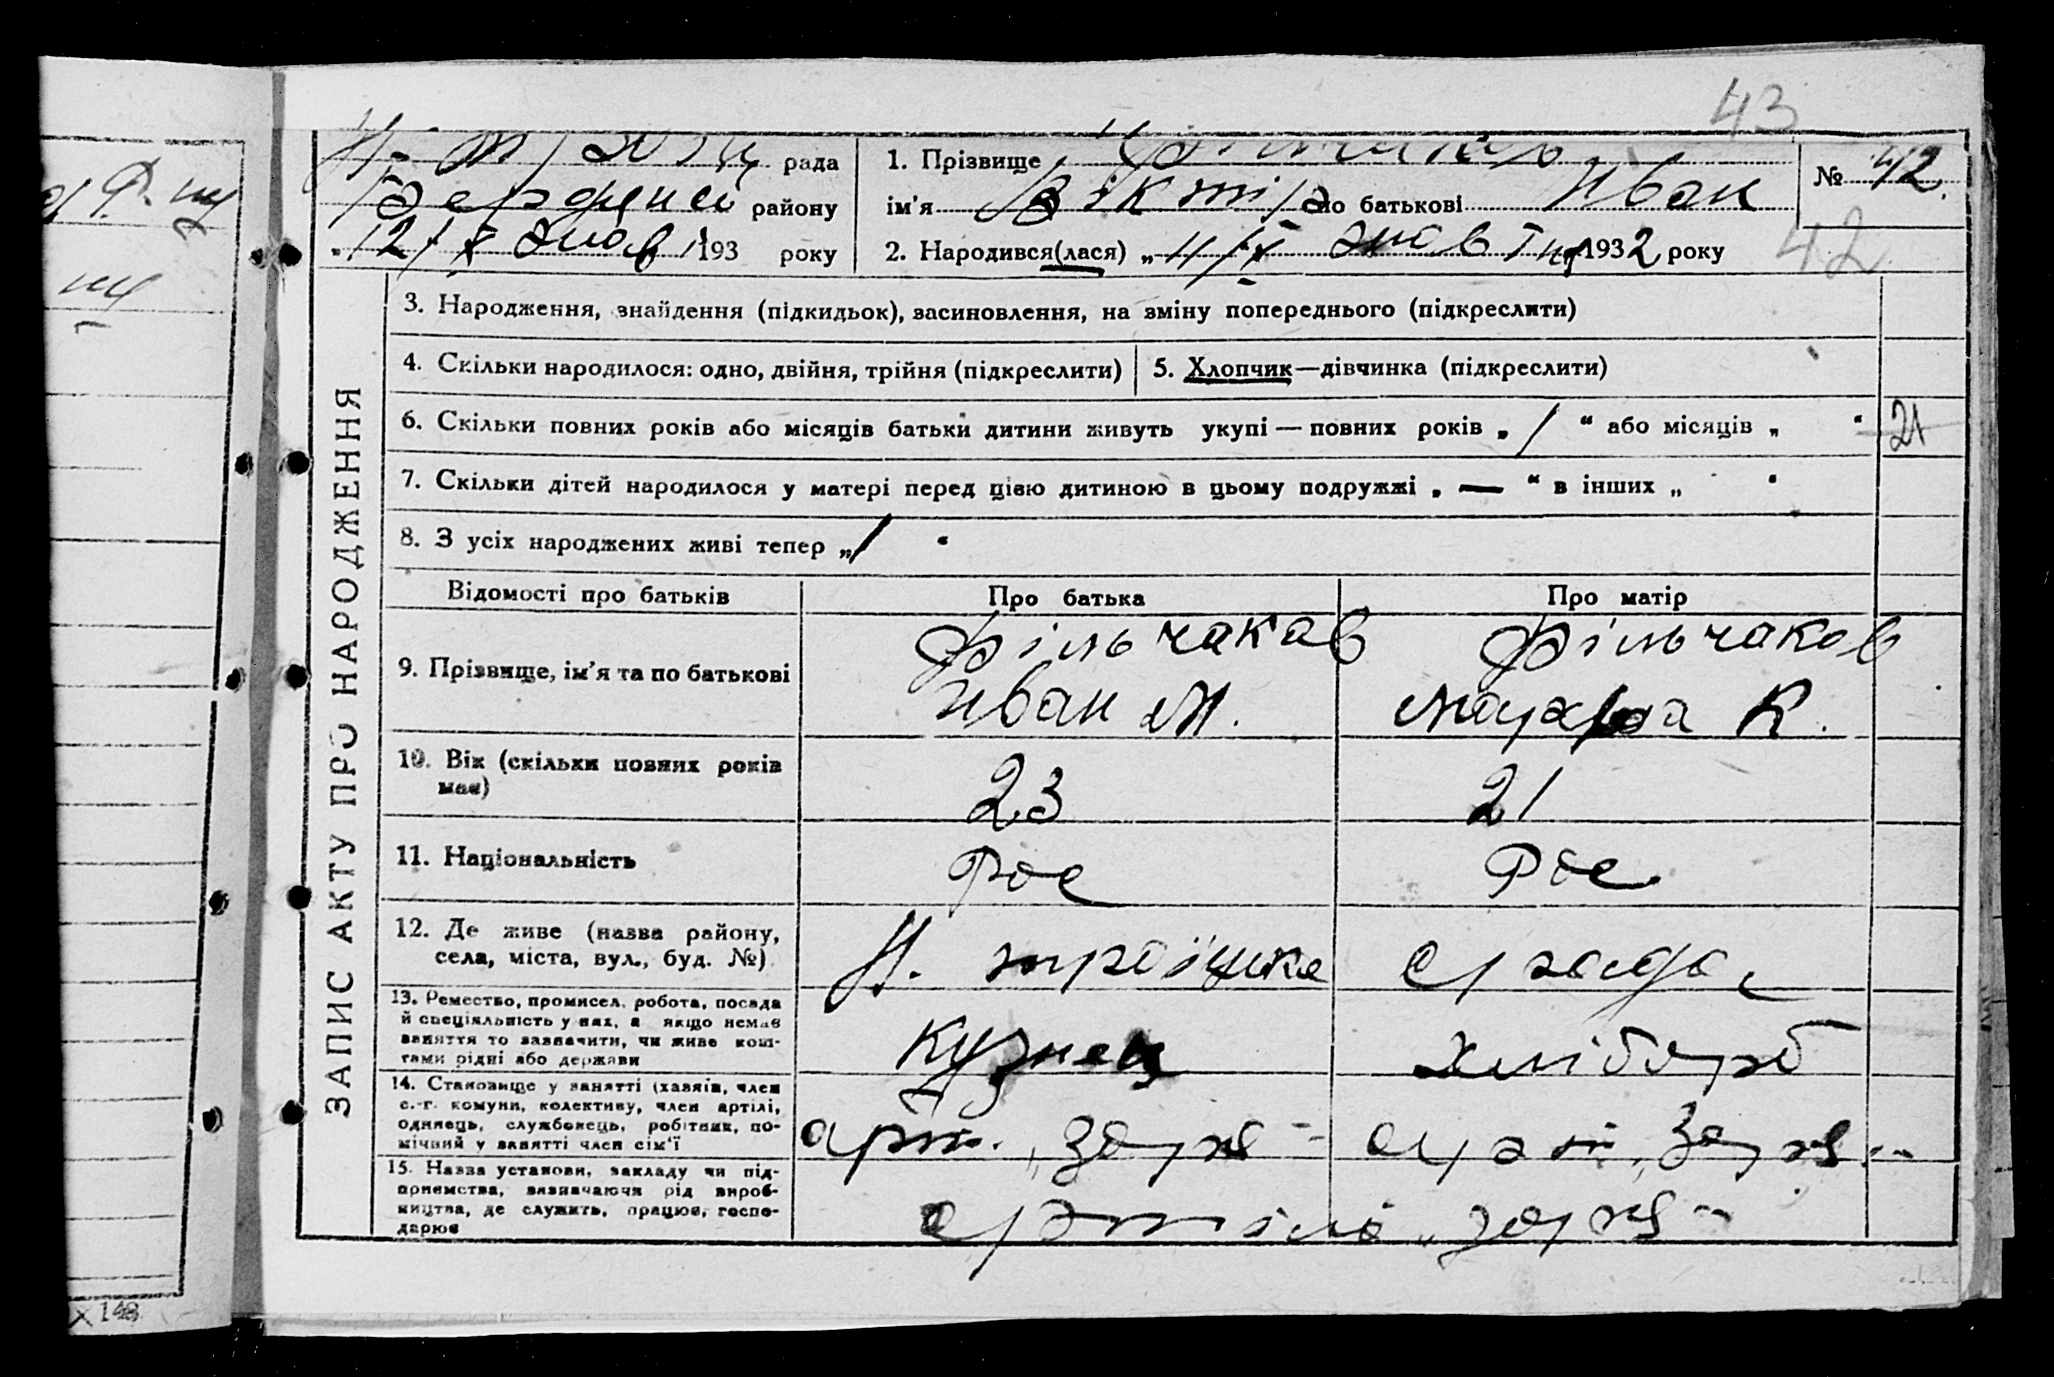 43
Н. Троїц рада
1. Прізвище Фільчаков
№ 42
Бердянсь району
ім'я Віктір по батькові Иван
„12/X жов 1193 року
2. Народився(лася) „11/X жовтня 1932 року
42
ЗАПИС АКТУ ПРО НАРОДЖЕННЯ
3. Народження, знайдення (підкидьок), засиновлення, на зміну попереднього (підкреслити)
4. Скільки народилося: одно, двійня, трійня (підкреслити)
5. Хлопчик—дівчинка (підкреслити)
6. Скільки повних років або місяців батьки дитини живуть укупі — повних років „ / “ або місяців „ “
21
7. Скільки дітей народилося у матері перед цією дитиною в цьому подружжі „ — “ в інших „ “
8. З усіх народжених живі тепер „ / “
Відомості про батьків
Про батька
Про матір
9. Прізвище, ім'я та по батькові
Фільчаков
Иван М.
Фільчаков
К.
10. Вік (скільки повних років
має)
23
21
11. Національність
Рос
Рос
12. Де живе (назва району,
села, міста, вул., буд. №)
Н. троїцке
13. Ремество, промисел, робота, посада
й спеціяльність у них, а якщо немає
заняття то зазначити, чи живе кош-
тами рідні або держави
Кузнец
хлібороб
14. Становище у занятті (хазяїн, член
с.-г. комуни, колективу, член артілі,
одинець, службовець, робітник, по-
мічний у занятті член сім'ї
арт. „Заря“
арт „Заря“
15. Назва установи, закладу чи під-
приємства, визначаючи рід вироб-
ництва, де служить, працює, госпо-
дарює
артілі „заря“
148